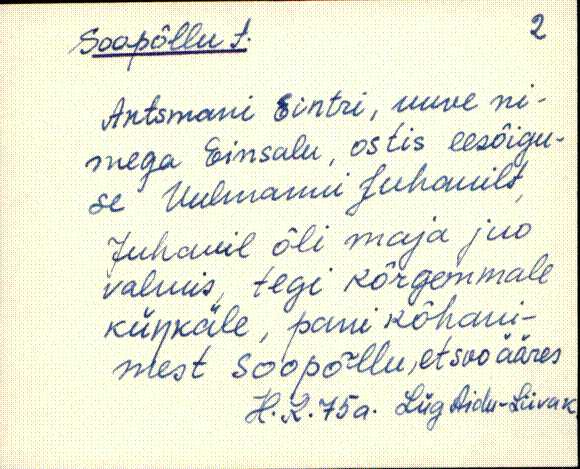 Soopõllu t.
2
Antsmani Eintri, uuve ni-
mega Einsalu, ostis eesõigu-
se Uulmanni Juhanilt,
Juhanil õli maja juo
valmis, tegi kõrgemmale
künkäle, pani kõhani-
mest Soopõllu, et soo ääres
H. R. 75a. Lüg Aidu-Liiva k.